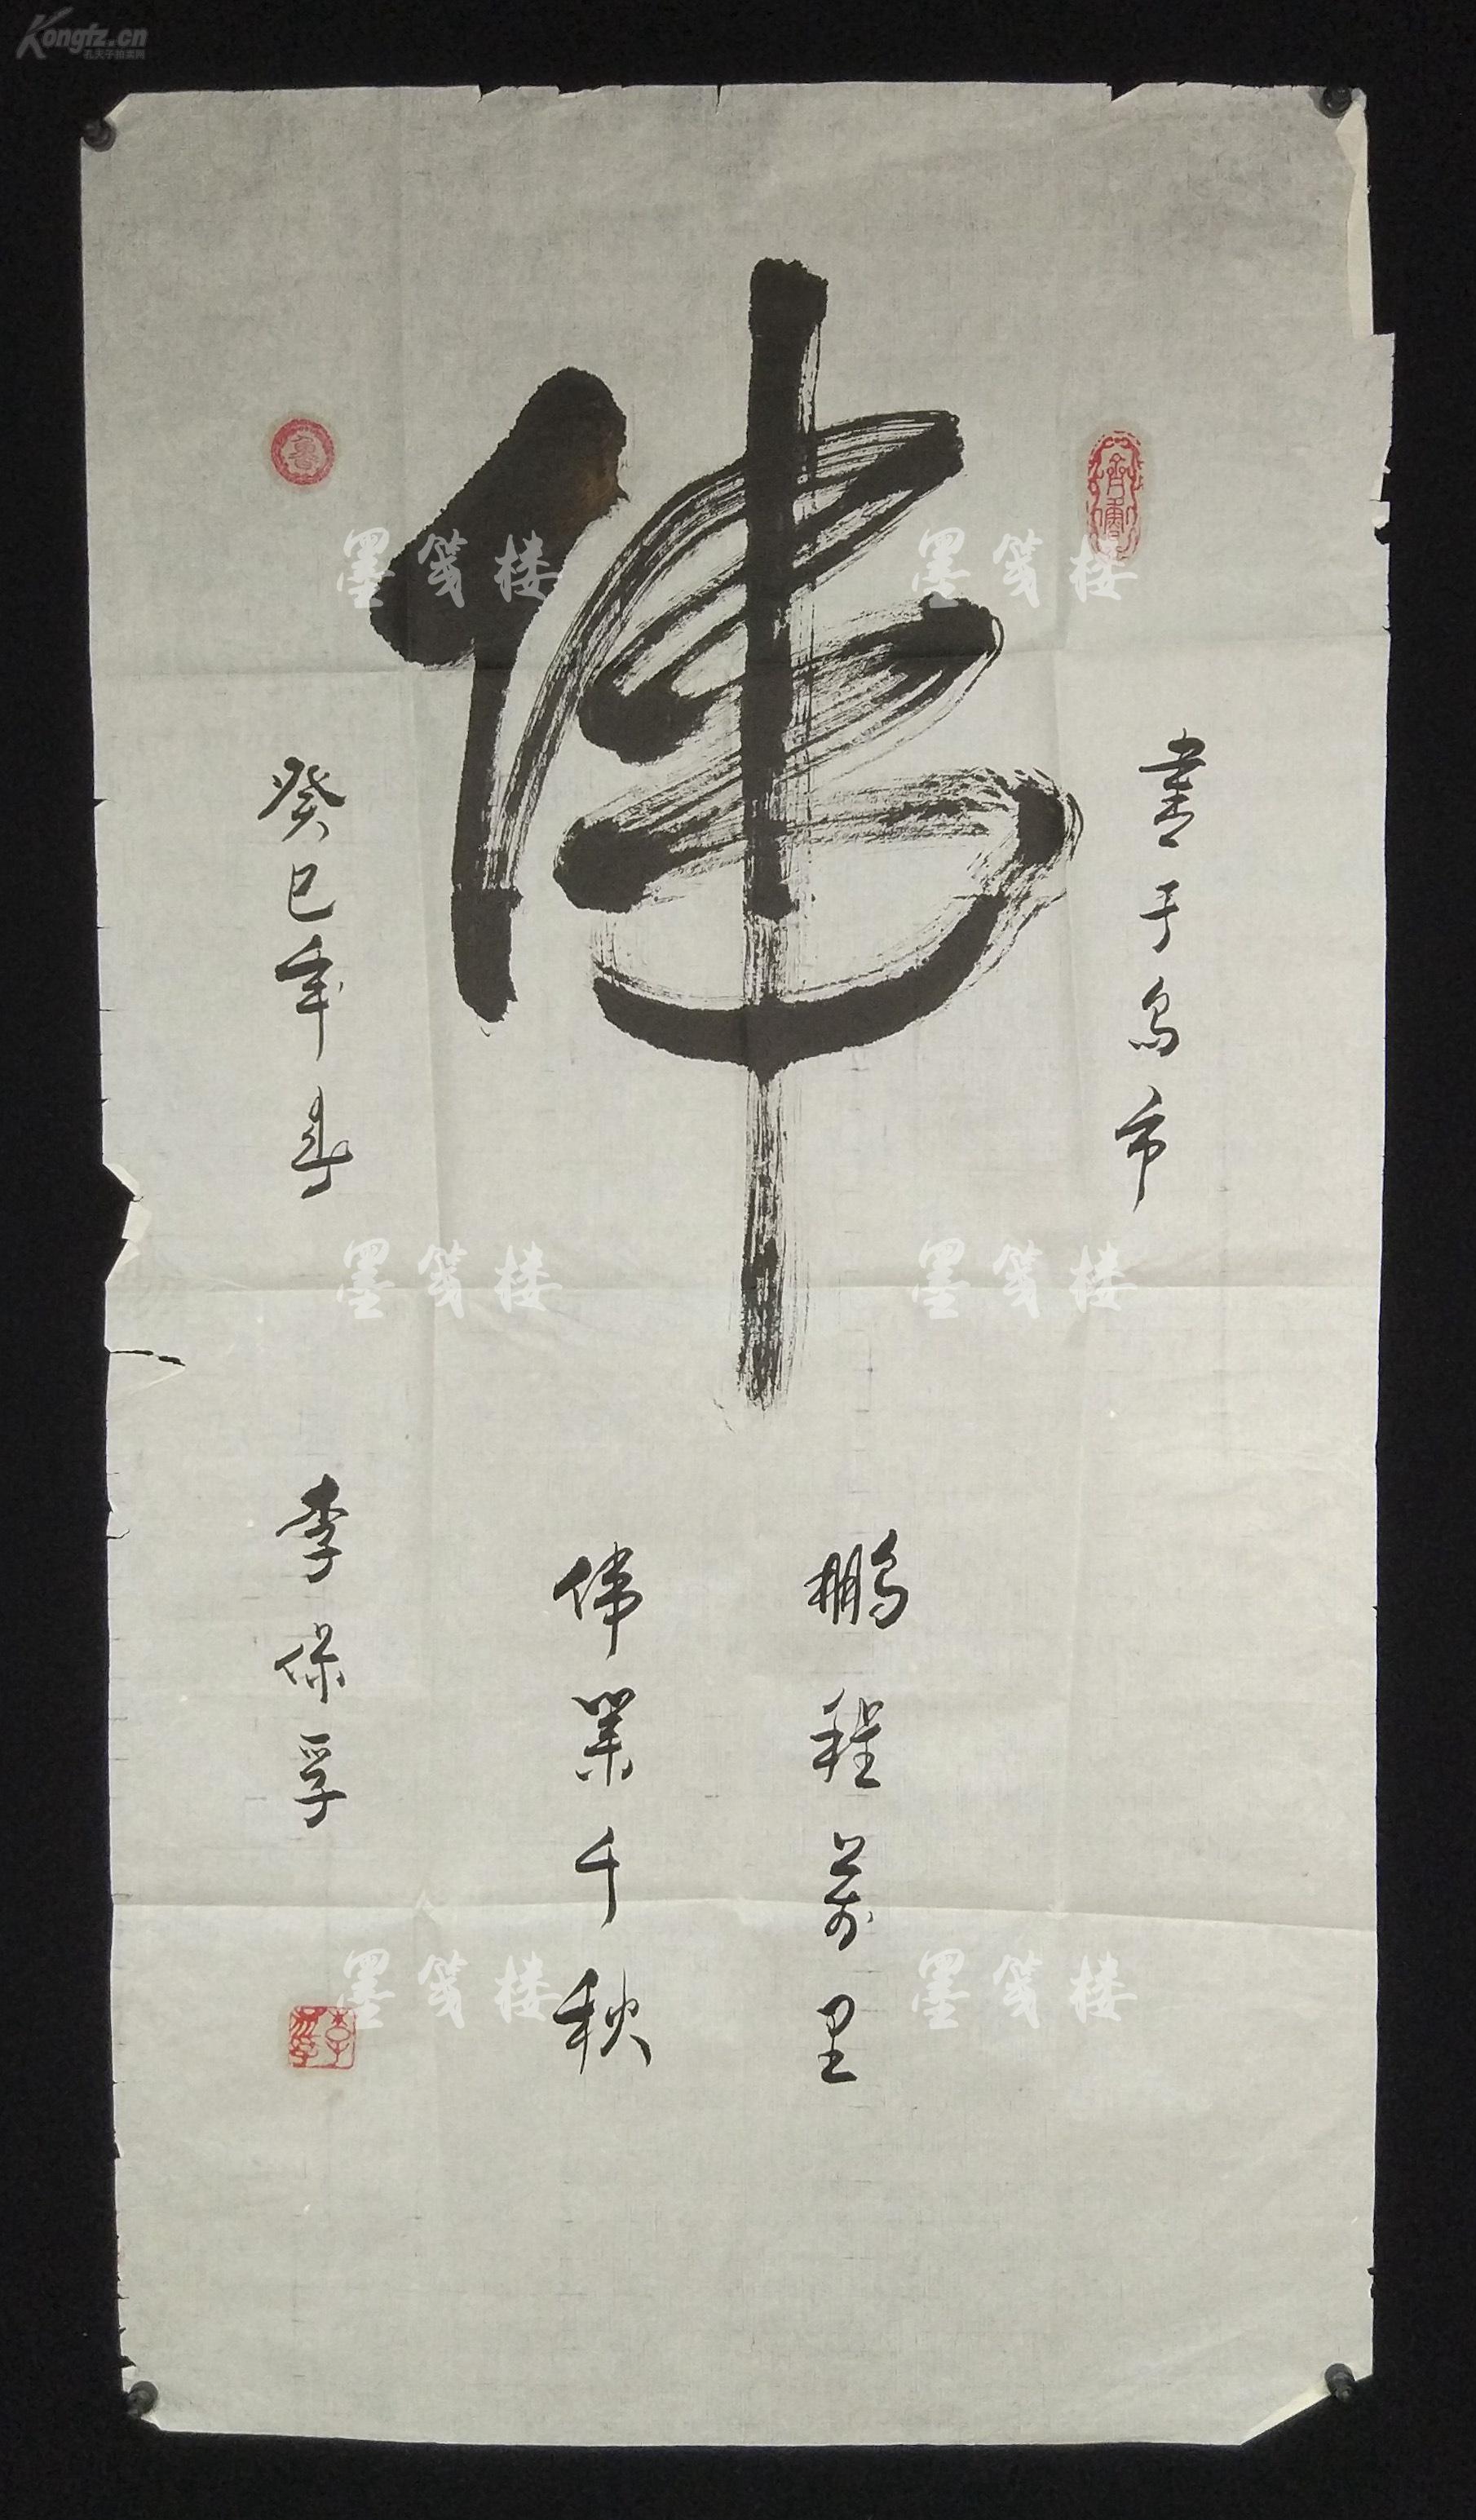 Kongfz.cn
孔夫子拍卖网
偉
书于乌市
鹏程万里
伟业千秋
癸巳年春
李保孚
魯
墨笺楼
墨笺楼
墨笺楼
墨笺楼
墨笺楼
墨笺楼